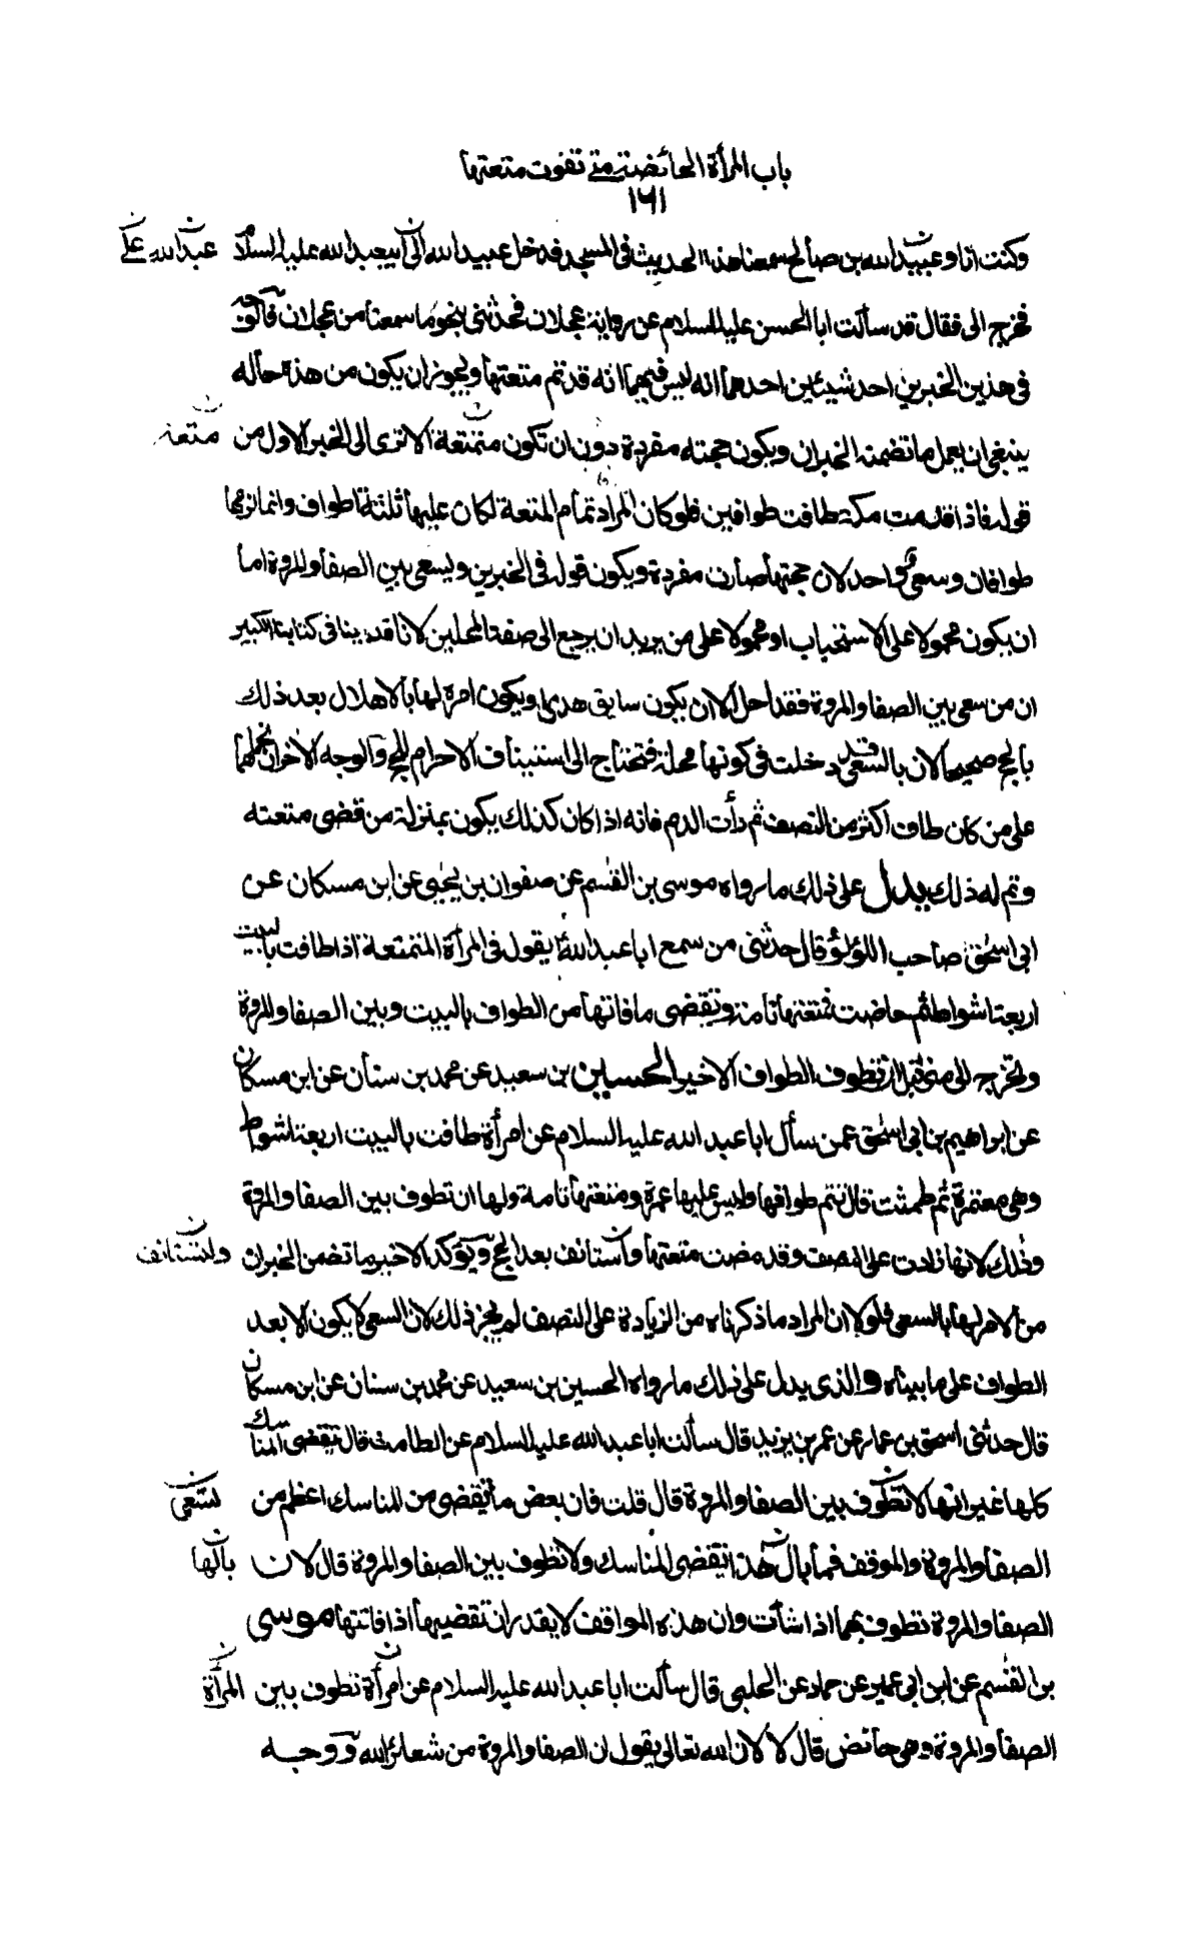 باب المرأة الحائضة متى تفوت متعتها
١٦١
وكنت انا وعبيد الله بن صالح سمعنا هذا الحديث في المسجد فدخل عبيد الله الى ابيعبد الله عليه السلام عبد الله على
فخرج الى فقال قد سألت ابا الحسن عليه السلام عن رواية عجلان فحدثنى بنحو ما سمعنا من عجلان فالوجه
في هذين الخبرين احد شيئين احدهما انه ليس فيهما انه قد تم متعتها ويجوز ان يكون من هذه حاله
ينبغى ان يعمل ما تضمنه الخبران ويكون حجته مفردة دون ان تكون متمتعة الا ترى الى الخبر الاول من متعة
قوله فاذا قدمت مكة طافت طوافين فلو كان المراد تمام المتعة لكان عليها ثلثة اطواف وانما لزمها
طوافان وسعى واحد لان حجتها صارت مفردة ويكون قوله في الخبرين وليسعى بين الصفا والمروة اما
ان يكون محمولا على الاستحباب او محمولا على من يريد ان يرجع الى صفة المحلين لانا قد بينا في كتابنا الكبير
ان من سعى بين الصفا والمروة فقد احل الا ان يكون سايق هدى ويكون امره لها بالاهلال بعد ذلك
بالحج صحيحا لان بالسعى قد دخلت في كونها محلة فتحتاج الى استيناف الاحرام للحج والوجه الاخر ان نحملهما
على من كان طاف اكثر من النصف ثم رأت الدم فانه اذا كان كذلك يكون بمنزلة من قضى متعته
وتم له ذلك يدل على ذلك ما رواه موسى بن القسم عن صفوان بن يحيى عن ابن مسكان عن
ابي اسحق صاحب اللؤلؤ قال حدثنى من سمع ابا عبد الله ع يقول في المرأة المتمتعة اذا طافت بالبيت
اربعة اشواط ثم حاضت فمتعتها تامة وتقضى ما فاتها من الطواف بالبيت وبين الصفا والمروة
وتخرج الى منى قبل ان تطوف الطواف الاخير الحسين بن سعيد عن محمد بن سنان عن ابن مسكان
عن ابراهيم بن ابي اسحق عمن سأل ابا عبد الله عليه السلام عن امرأة طافت بالبيت اربعة اشواط
وهى معتمرة ثم طمثت قال تتم طوافها وليس عليها عمرة ومتعتها تامة ولها ان تطوف بين الصفا والمروة
وذلك لانها زادت على النصف وقد مضت متعتها وتستانف بعد الحج ويؤكد الاخير ما تضمن الخبران ولتستانف
من الامر لها بالسعى فلولا ان المراد ما ذكرناه من الزيادة على النصف لم يجز ذلك لان السعى لا يكون الا بعد
الطواف على ما بيناه والذى يدل على ذلك ما رواه الحسين بن سعيد عن محمد بن سنان عن ابن مسكان
قال حدثنى اسحق بن عمار عن عمر بن يزيد قال سألت ابا عبد الله عليه السلام عن الطامث قال تقضى المناسك
كلها غير انها لا تطوف بين الصفا والمروة قال قلت فان بعض ما تقضى من المناسك اعظم من تسعى
الصفا والمروة والموقف فما بال هذا تقضى المناسك ولا تطوف بين الصفا والمروة قال لان بالها
الصفا والمروة تطوف بهما اذا شاءت وان هذه المواقف لا يقدر ان تقضيها اذا فاتتها موسى
بن القسم عن ابن ابى عمير عن حماد عن الحلبى قال سألت ابا عبد الله عليه السلام عن امرأة تطوف بين المرأة
الصفا والمروة وهى حائض قال لا لان الله تعالى يقول ان الصفا والمروة من شعائر الله فوجه